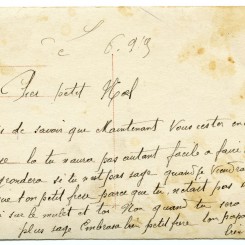 6. 9'3
petit Noel
de savoir que Maintenant Vous ester en
la tu naura pas autant facile a faire
cordera si tu n'est pas sage quand je viendra
que ton petit frere parce que tu n'etait pas
sur le molet et ton Non quand tu sera
plus sage Embrasse bien petit frere ton papa
bien